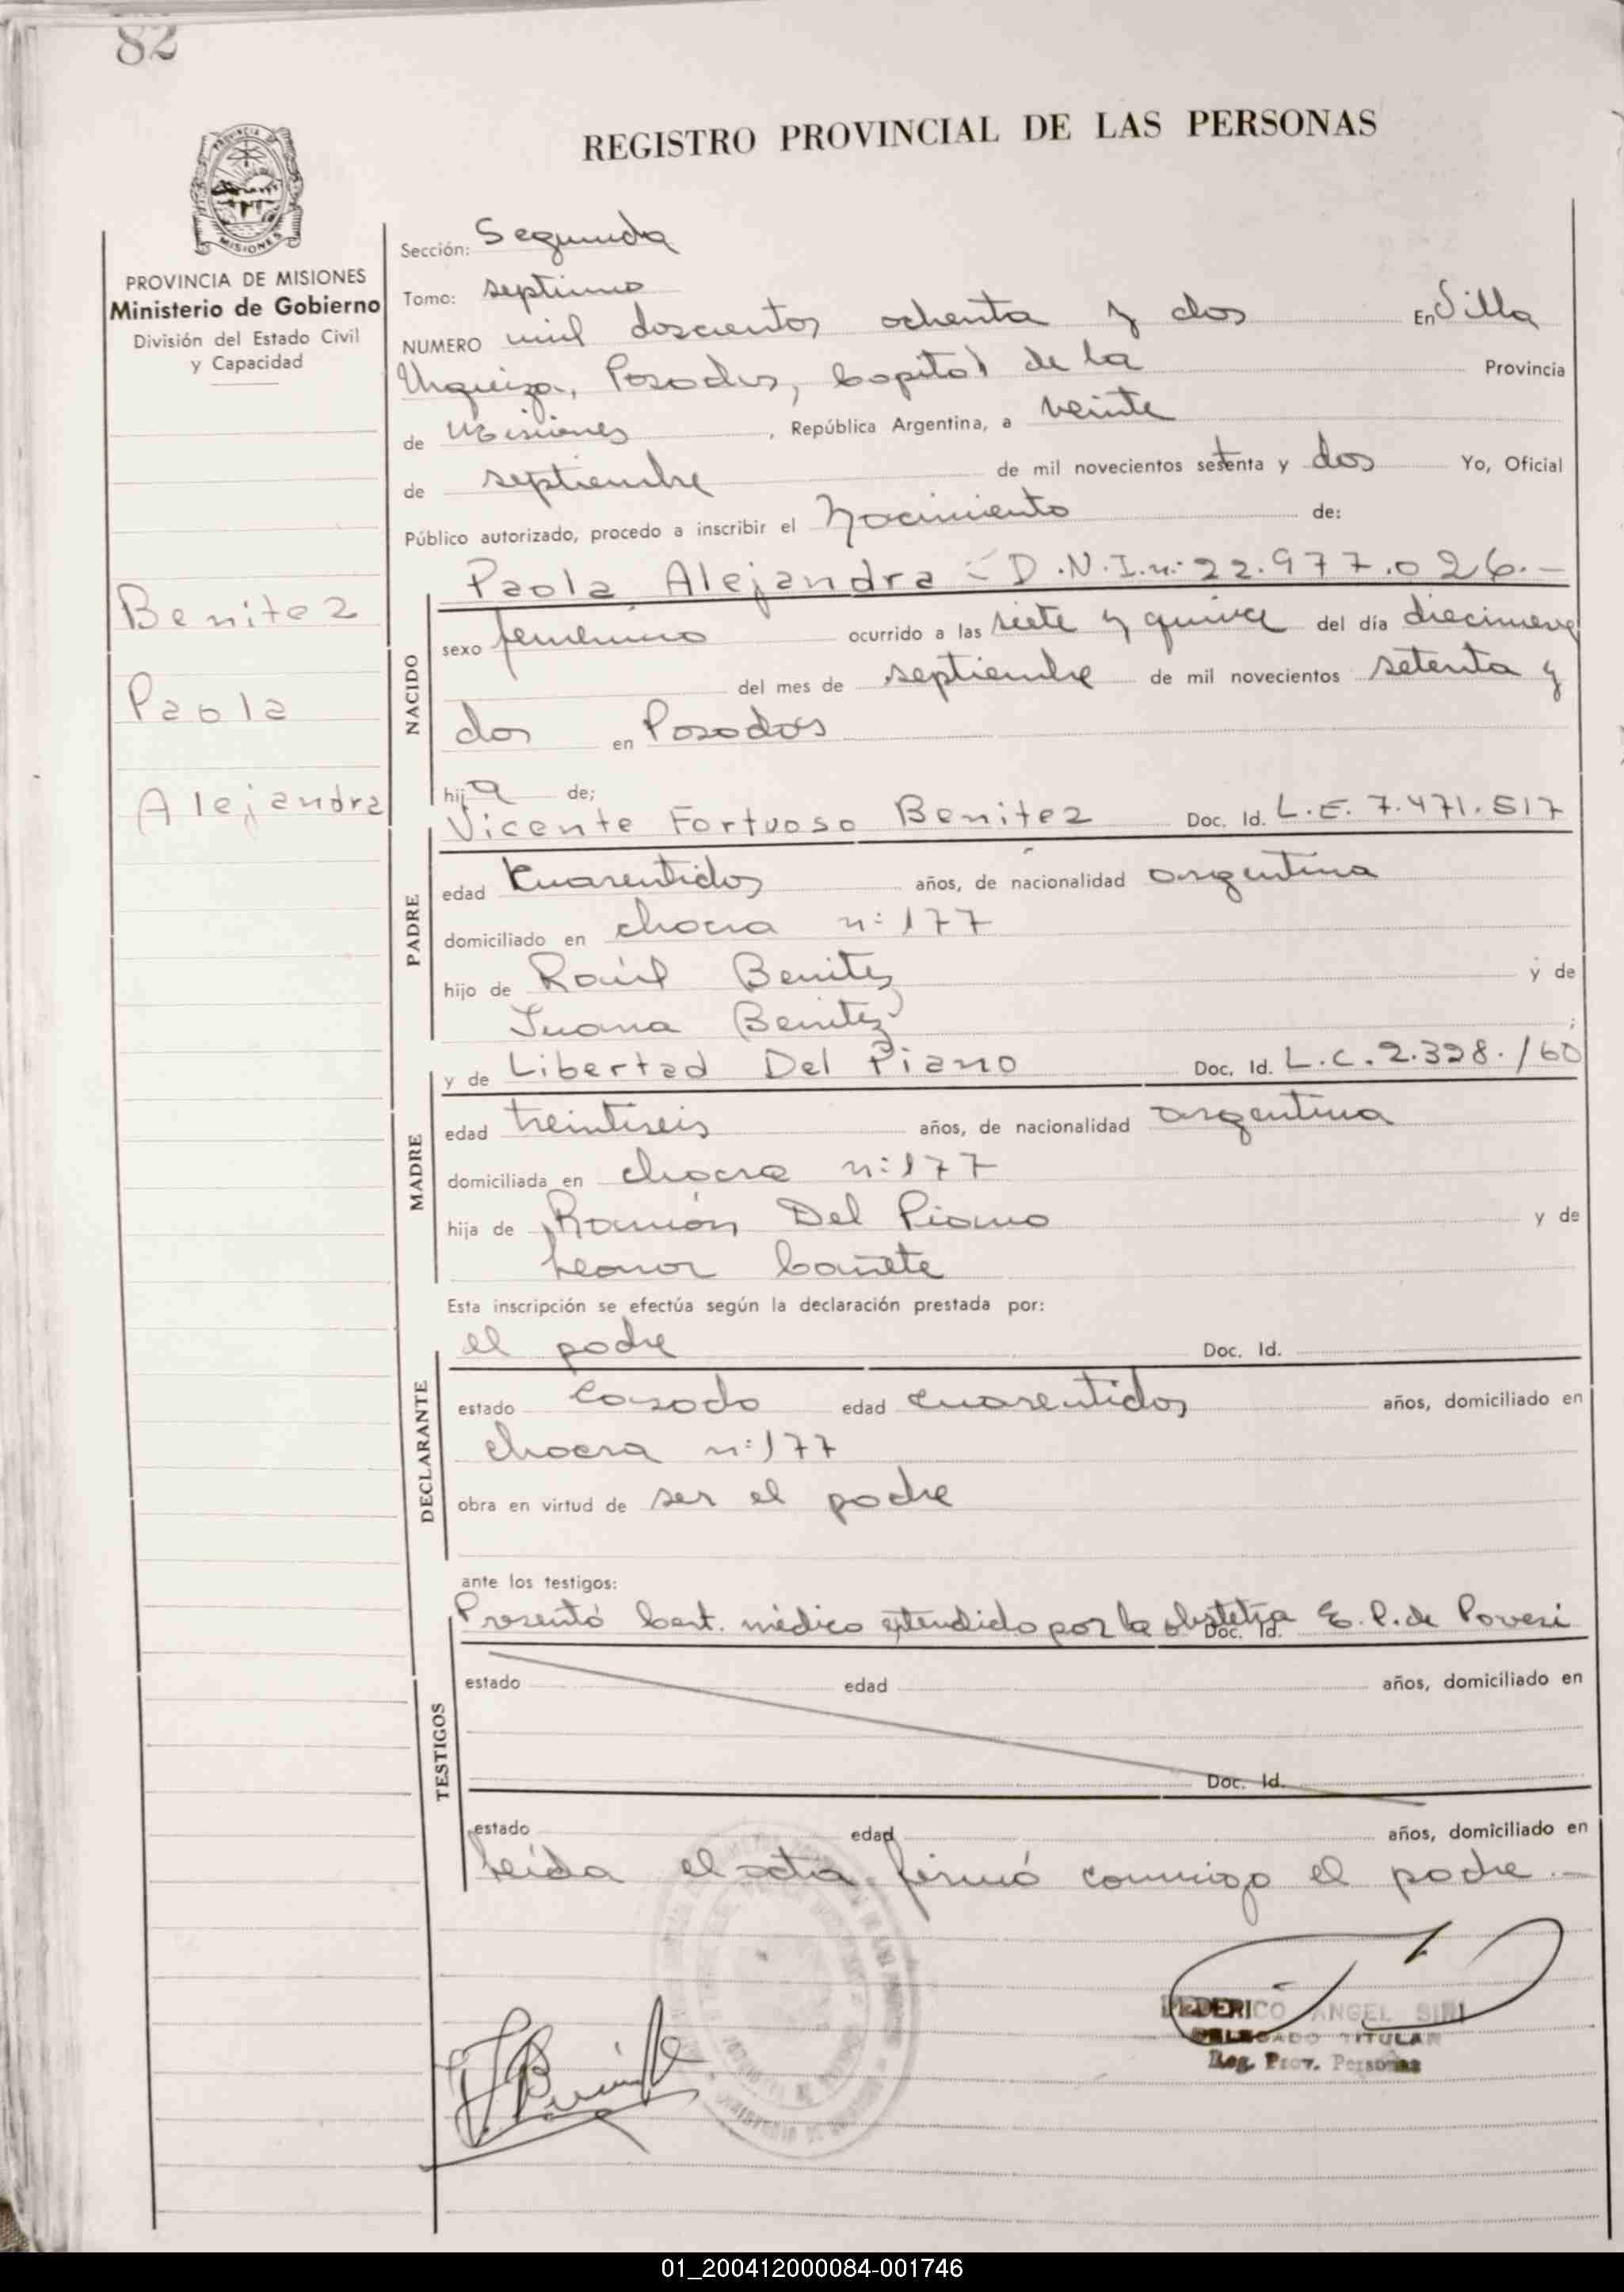 82
REGISTRO PROVINCIAL DE LAS PERSONAS
PROVINCIA DE
MISIONES
PROVINCIA DE MISIONES
Ministerio de Gobierno
División del Estado Civil
y Capacidad
Benitez
Paola
Alejandra
Sección: Segunda
Tomo: septimo
NUMERO mil doscientos ochenta y dos En Villa
Urquiza, Posadas, Capital de la Provincia
de Misiones, República Argentina, a veinte
de septiembre de mil novecientos setenta y dos Yo, Oficial
Público autorizado, procedo a inscribir el Nacimiento de:
NACIDO
Paola Alejandra - D.N.I. n: 22.977.026.-
sexo femenino ocurrido a las siete y quince del día diecinueve
del mes de septiembre de mil novecientos setenta y
dos en Posadas
hija de;
PADRE
Vicente Fortuoso Benitez Doc. Id. L.E. 7.471.517
edad cuarentidos años, de nacionalidad argentina
domiciliado en chacra n: 177
hijo de Raúl Benitez y de
Juana Benitez ;
MADRE
y de Libertad Del Piano Doc. Id. L.C. 2.328.160
edad treintiseis años, de nacionalidad argentina
domiciliada en chacra n: 177
hija de Ramón Del Piano y de
Leonor Cañete
Esta inscripción se efectúa según la declaración prestada por:
DECLARANTE
el padre Doc. Id.
estado casado edad cuarentidos años, domiciliado en
chacra n: 177
obra en virtud de ser el padre
ante los testigos:
TESTIGOS
Presentó Cert. médico extendido por la obstetra E. P. de Poveri
Doc. Id.
estado edad años, domiciliado en
Doc. Id.
estado edad años, domiciliado en
Leída el acta, firmó conmigo el padre.-
FEDERICO ANGEL SIRI
DELEGADO TITULAR
Reg. Prov. Personas
01_200412000084-001746